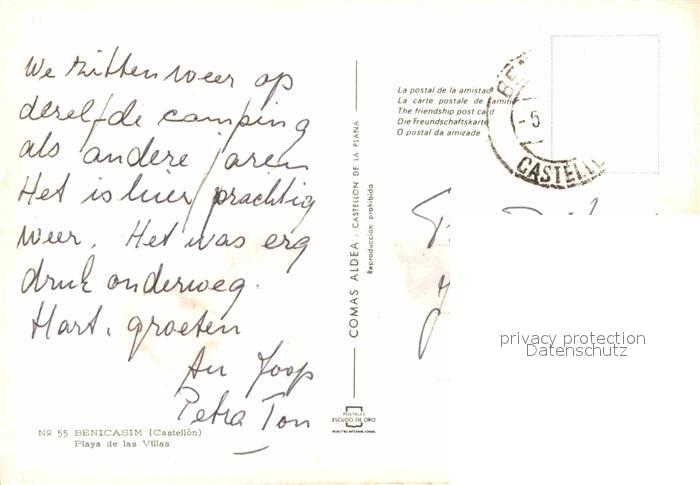 We zitten weer op
dezelfde camping
als andere jaren
Het is hier prachtig
weer. Het was erg
druk onderweg.
Hart. groeten
An Joop
Petra Ton
Nº 55 BENICASIM (Castellón)
Playa de las Villas
COMAS ALDEA - CASTELLON DE LA PLANA
Reproducción prohibida
POSTALES
ESCUDO DE ORO
REGISTRO INTERNACIONAL
La postal de la amistad
La carte postale de l'amitié
The friendship post card
Die Freundschaftskarte
O postal da amizade
BEN
-5
CASTELL
privacy protection
Datenschutz